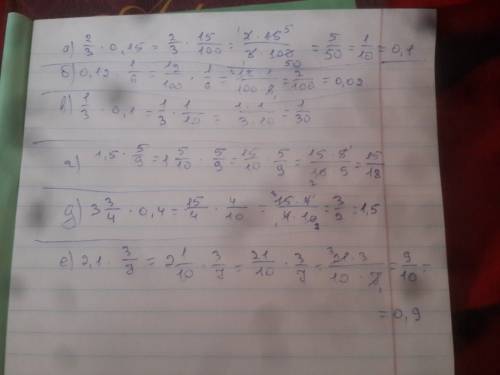 а) 2/3 · 0,15 = 2/3 · 15/100 = 2·15/3·100 = 5/50 = 1/10 = 0,1
б) 0,12 · 1/6 = 12/100 · 1/6 = 12·1/100·6 = 2/100 = 0,02
в) 1/3 · 0,1 = 1/3 · 1/10 = 1·1/3·10 = 1/30
г) 1,5 · 5/9 = 1 5/10 · 5/9 = 15/10 · 5/9 = 15·5/10·9 = 15/18
д) 3 3/4 · 0,4 = 15/4 · 4/10 = 15·4/4·10 = 3/2 = 1,5
е) 2,1 · 3/7 = 2 1/10 · 3/7 = 21/10 · 3/7 = 21·3/10·7 = 9/10 =
= 0,9